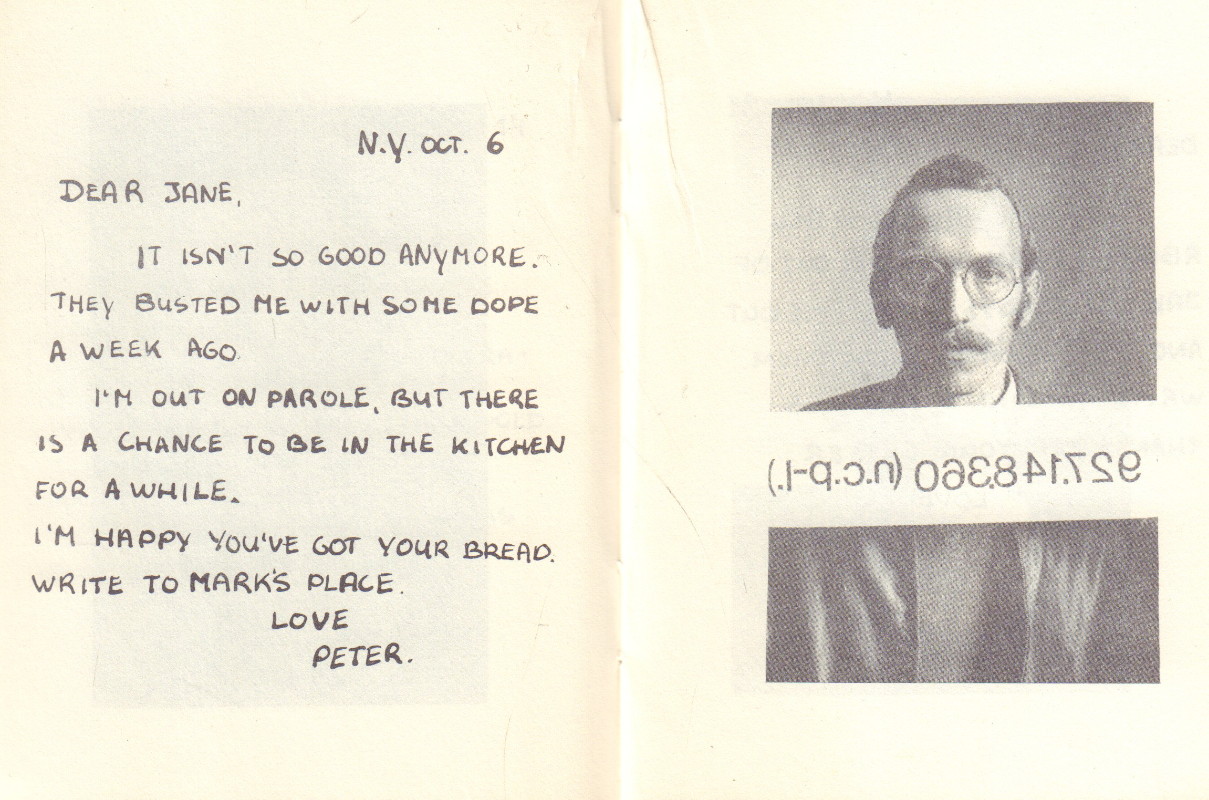 N.Y. OCT. 6
DEAR JANE,
IT ISN'T SO GOOD ANYMORE.
THEY BUSTED ME WITH SOME DOPE
A WEEK AGO.
I'M OUT ON PAROLE, BUT THERE
IS A CHANCE TO BE IN THE KITCHEN
FOR A WHILE.
I'M HAPPY YOU'VE GOT YOUR BREAD.
WRITE TO MARK'S PLACE.
LOVE
PETER.
927.148.360 (n.c.p-l.)